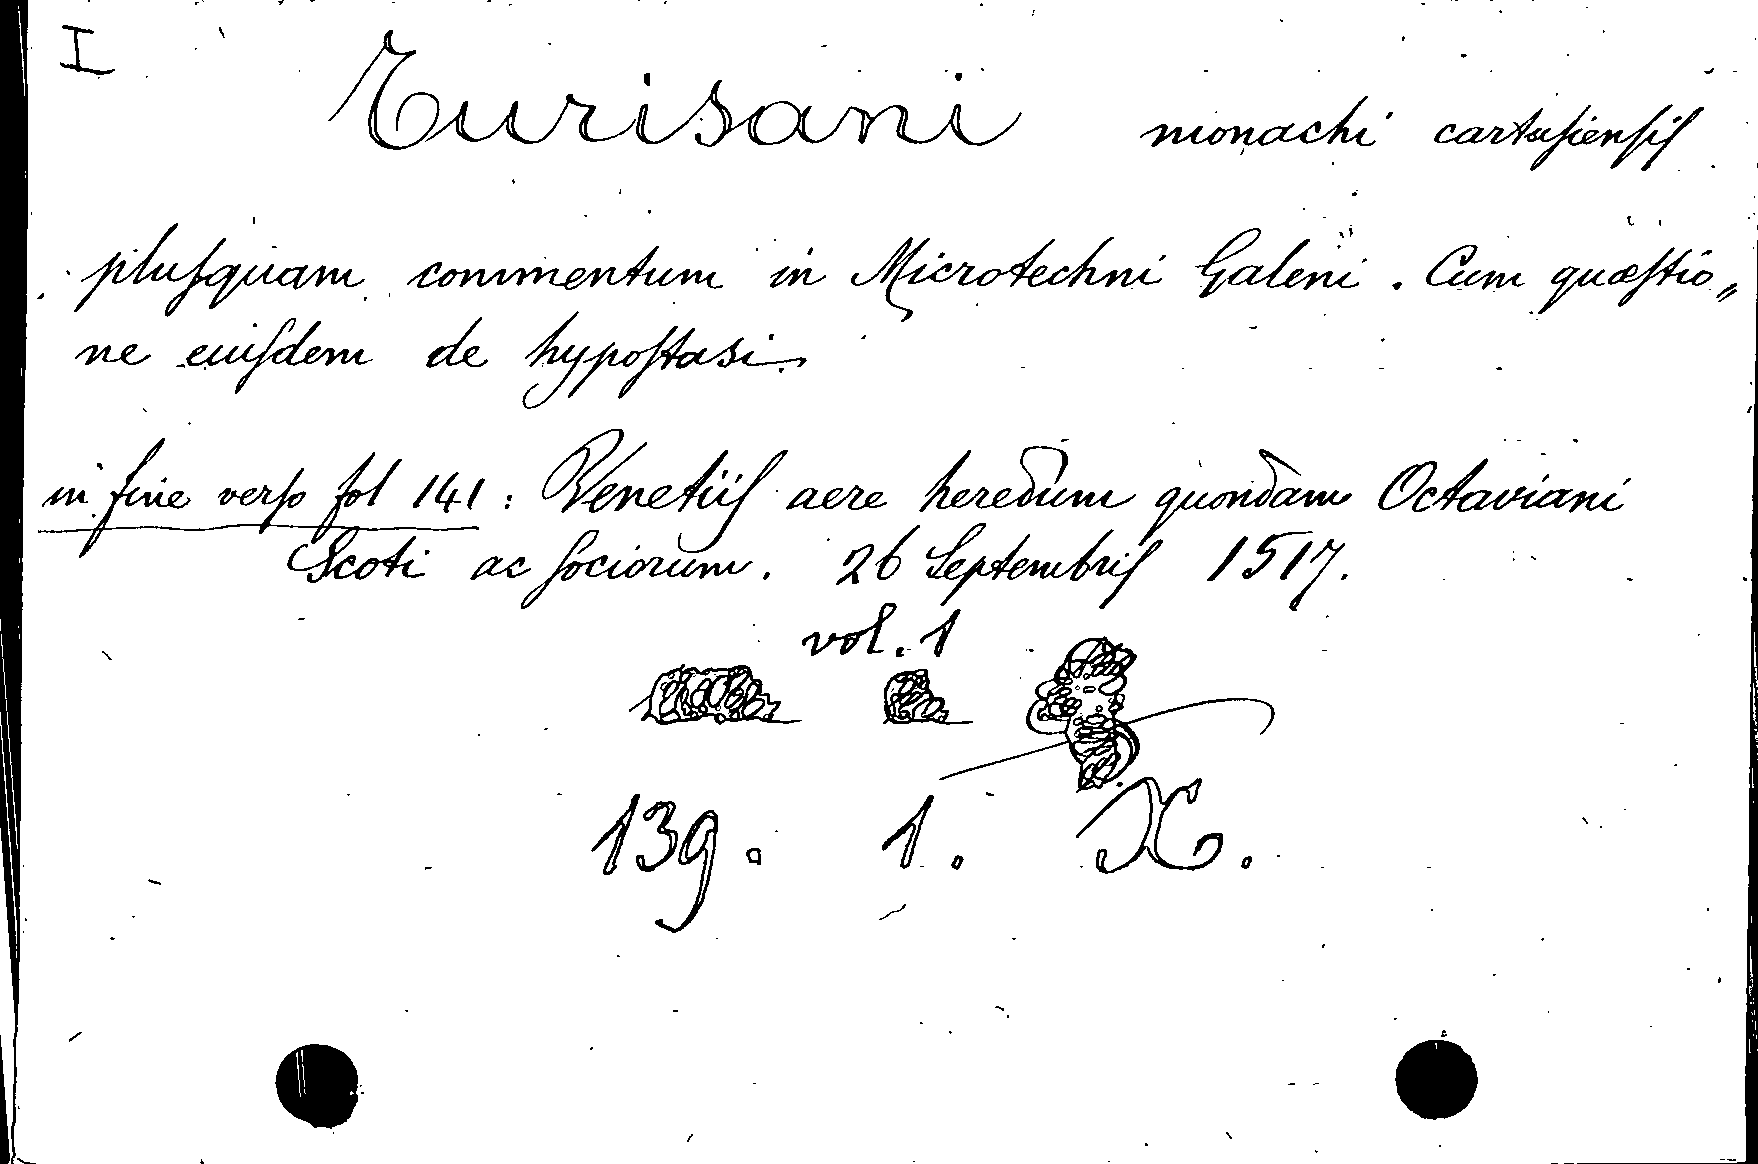 I
Turisani monachi cartuſienſis
pluſquam commentum in Microtechni Galeni. Cum quæſtio„
ne eiuſdem de hypoſtasi.
in fine verſo fol 141: Venetiis aere heredum quondam Octaviani
Scoti ac ſociorum. 26 Septembris 1517.
vol. 1
139. 1. X.